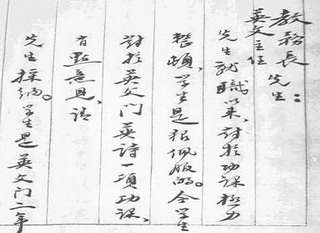 教務長
英文主任
先生：
先生就職以来，対於功課極力
整頓，学生是狠佩服的。今学生
対於英文门英詩一項功課，
有點意見，請
先生採納。学生是英文门二年